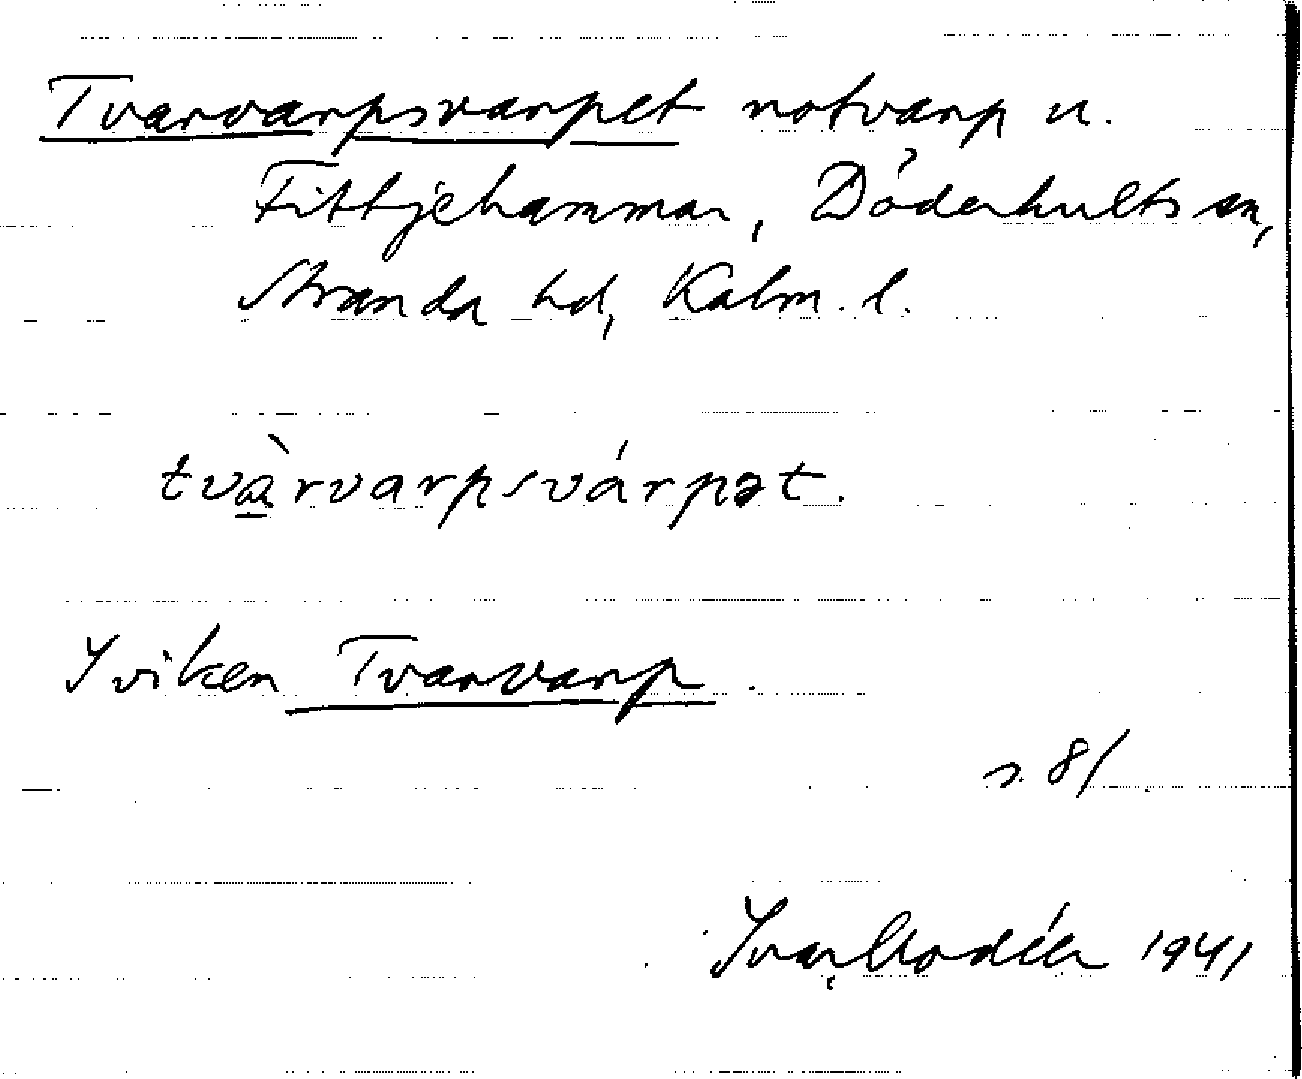 Tvarvarpsvarpet notvarp u.
Fittjehammar, Döderhults sn,
Stranda hd, Kalm. l.
tvàrvarpsvárpət.
I viken Tvarvarp.
s. 81
Ivar Modéer 1941